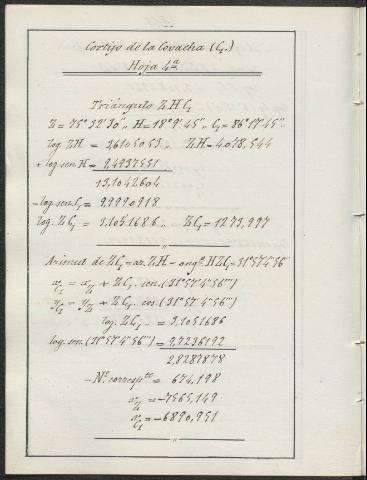 Cortijo de la Covacha (C₁.)
Hoja 4ª
Triángulo Z H C₁
Z = 75° 32' 30" „ H = 18° 9' 45" „ C₁ = 86° 17' 45" „
log. ZH = 3,6105053 „ ZH = 4078,544
+ log. sen. H = 9,4937551
13,1042604
- log. sen. C₁ = 9,9990918
log. Z C₁ = 3,1051686 „ Z C₁ = 1273,997
Azimut de Z C₁ = az. ZH - angº. H Z C₁ = 31° 57' 4" 56'''
x C₁ = x Z + Z C₁ . sen. (31° 57' 4" 56''')
y C₁ = y Z + Z C₁ . cos. (31° 57' 4" 56''')
log. Z C₁ = 3,1051686
log. sen. (31° 57' 4" 56''') = 9,7236192
2,8287878
Nº. correspte = 674,198
x Z = -7565,149
x C₁ = -6890,951